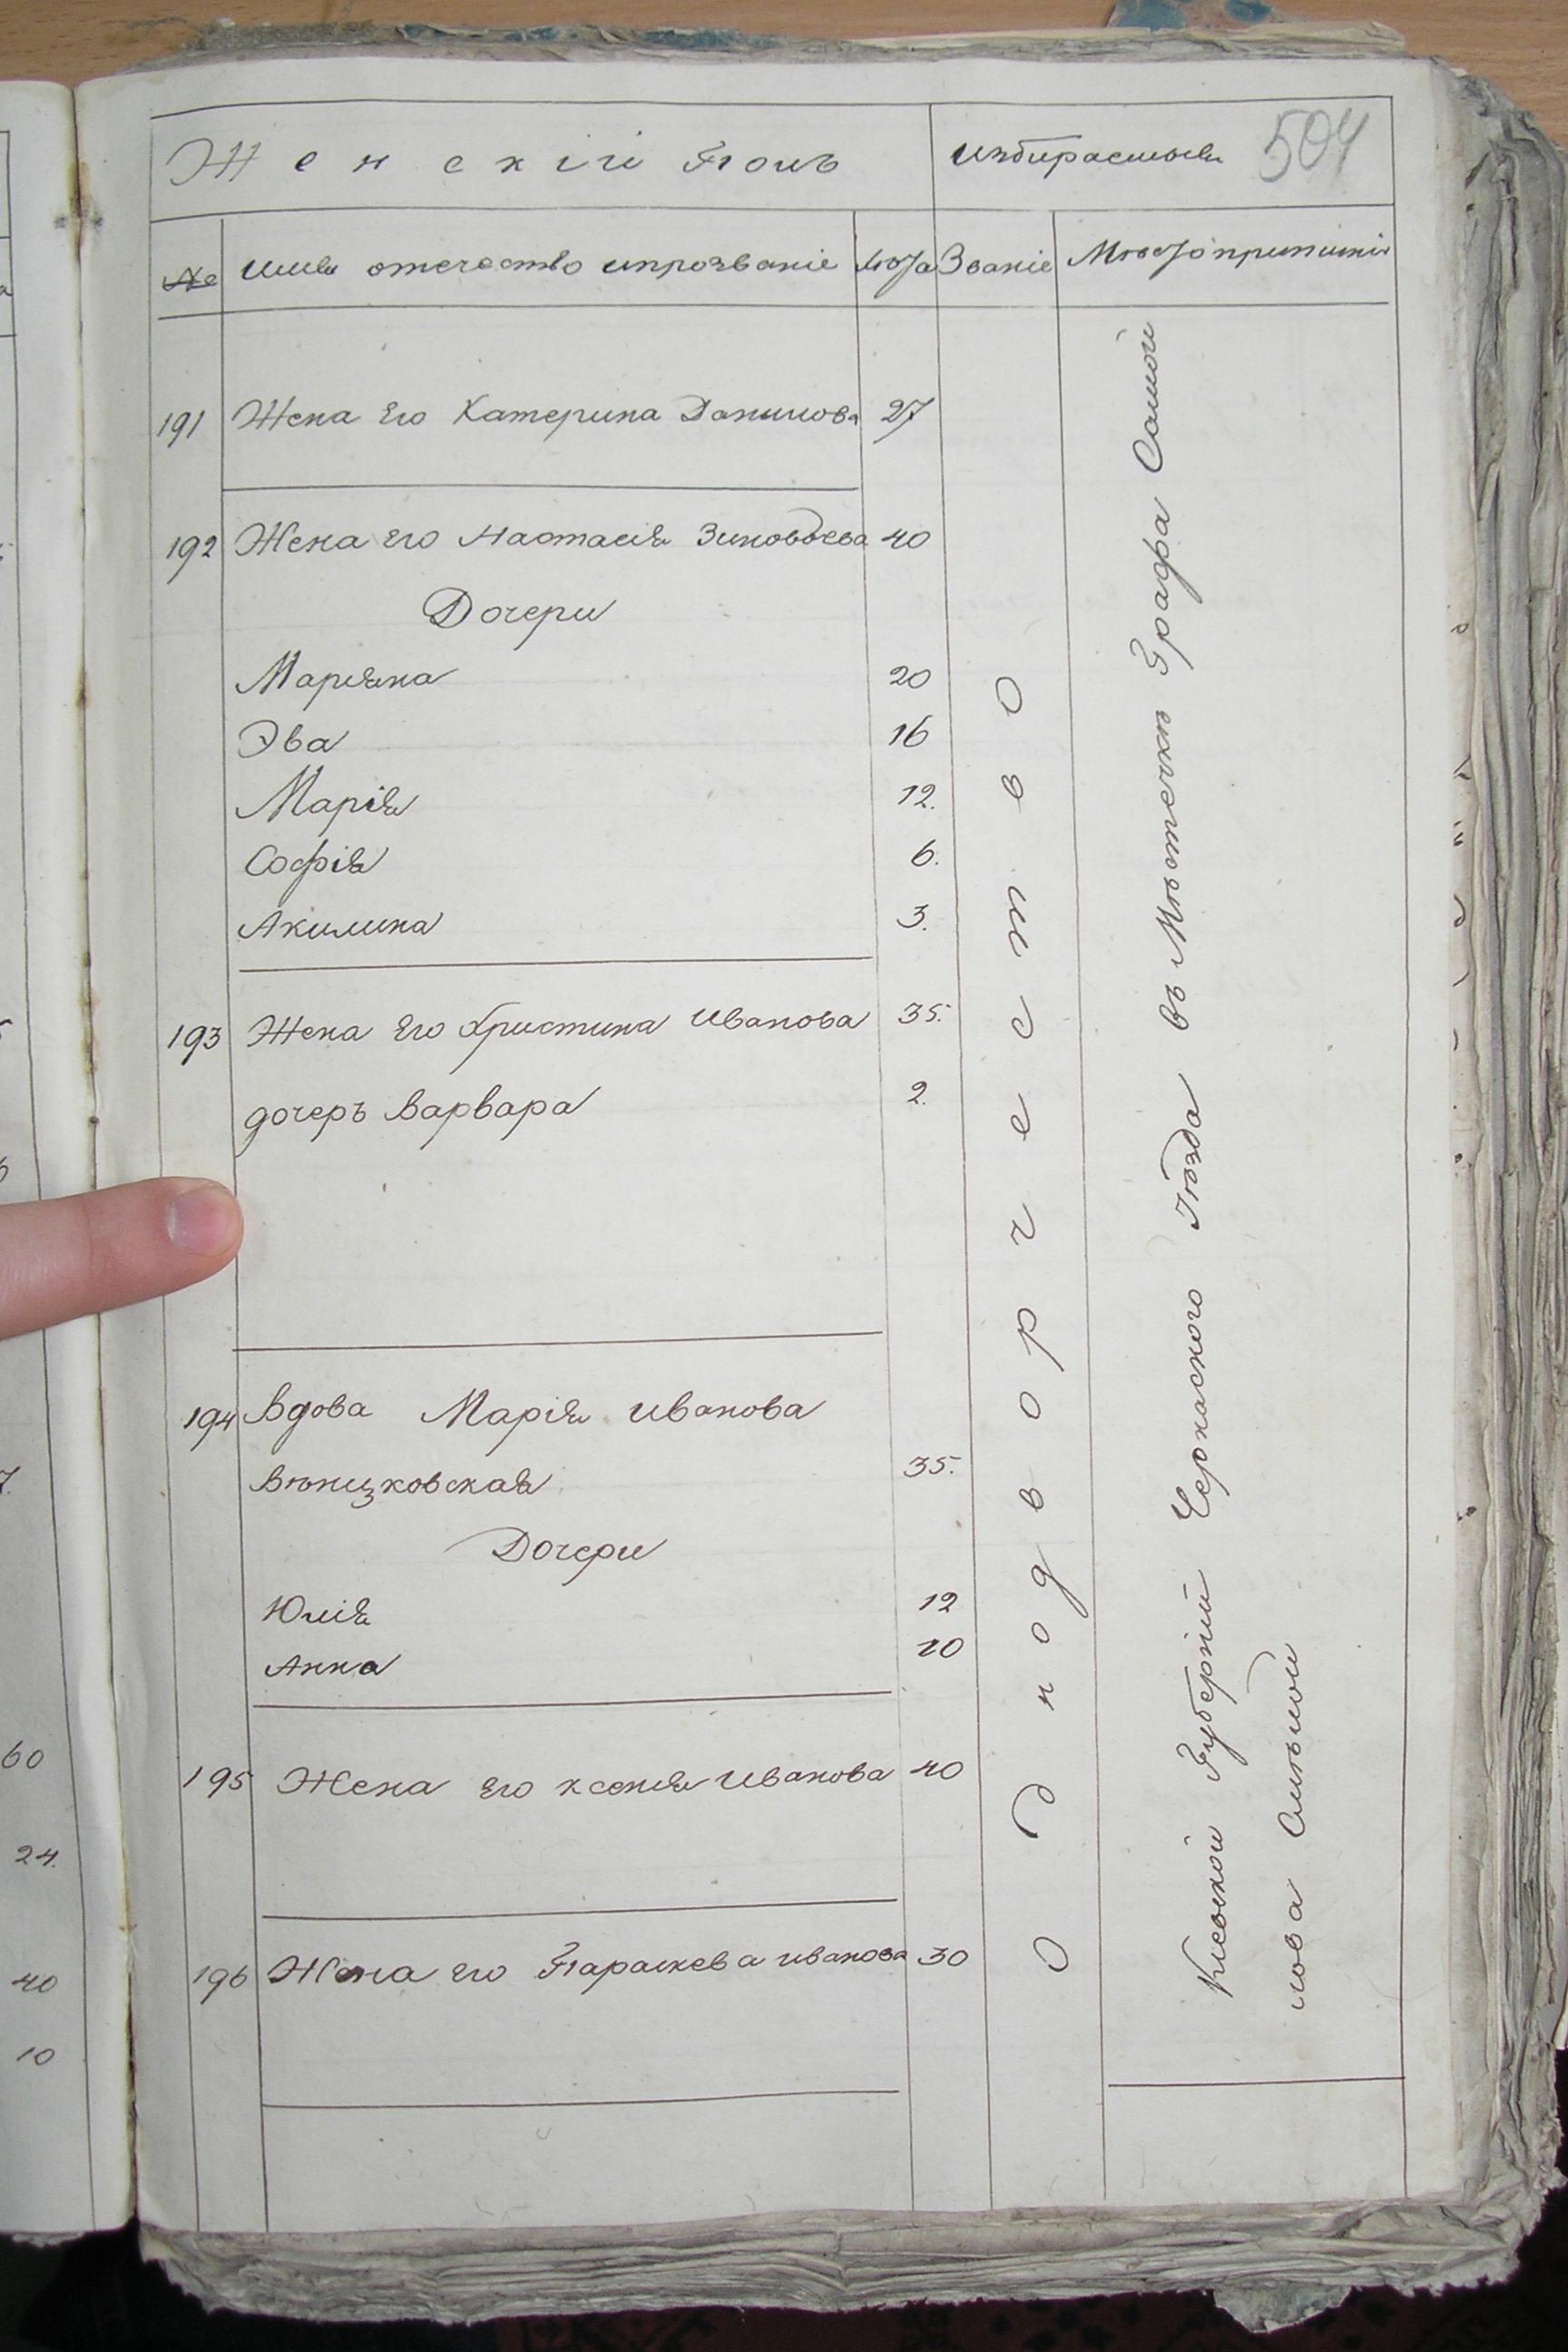 Женскій Полъ
избираемыя
504
№
имя отечество ипрозваніе
лѣта
Званіе
Мѣсто приписки
191 Жена Его Катерина Данилова 27
192 Жена Его Настасія Зиновьева 40
Дочери
Маріяна 20
Эва 16
Марія 12.
Софія 6.
Акилина 3.
193 Жена Его Христина Иванова 35.
дочеръ Варвара 2.
194 Вдова Марія Иванова
Вѣнцковская 35.
Дочери
Юлія 12
Анна 10
195 Жена Его Ксенія Иванова 40
196 Жена Его Параскева Иванова 30
Однодворчество
Кіевской Губерніи Черкаского Уѣзда въ Мѣстечкѣ Графа Самой
лова Смѣлой
60
24.
40
10